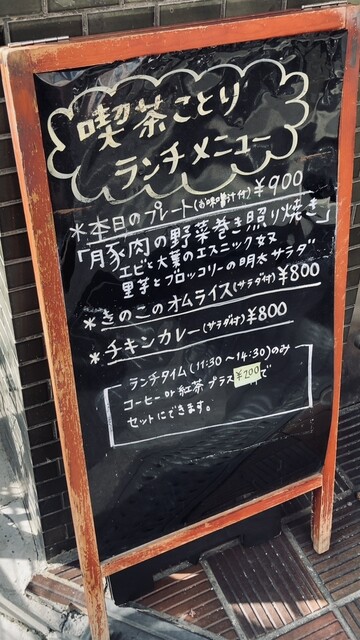 喫茶ことり
ランチメニュー
*本日のプレート(お味噌汁付)¥900
「豚肉の野菜巻き照り焼き」
エビと大葉のエスニック奴
里芋とブロッコリーの明太サラダ
*きのこのオムライス(サラダ付)¥800
*チキンカレー(サラダ付)¥800
ランチタイム(11:30~14:30)のみ
コーヒー or 紅茶 プラス ¥200 で
セットにできます。